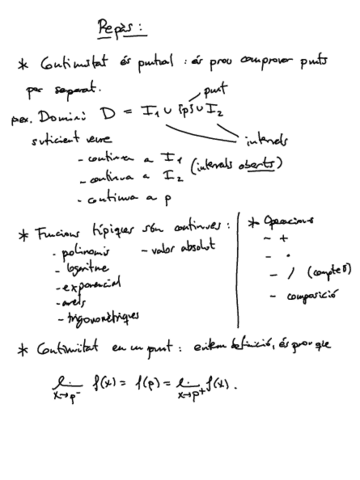 Repàs:
* Continuïtat és puntual: és prou comprovar punts
per separat.
punt
per ex. Domini D = I₁ ∪ {p} ∪ I₂
intervals
suficient veure
- contínua a I₁ (intervals oberts)
- contínua a I₂
- contínua a p
* Funcions típiques són contínues:
- polinomis - valor absolut
- logaritme
- exponencial
- arrels
- trigonomètriques
* Operacions
- +
- ·
- / (compte 0)
- composició
* Continuïtat en un punt: definició, és prou que
lim x→p⁻ f(x) = f(p) = lim x→p⁺ f(x).